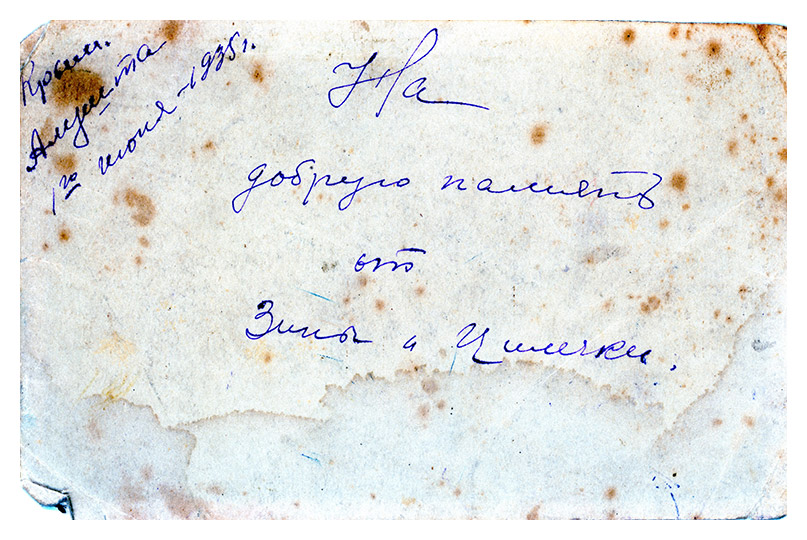 Крым.
Алушта
1го июня - 1935 г.
На
добрую память
от
Зины и Цилечки.